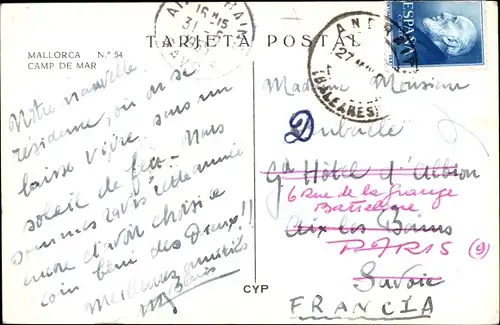 TARJETA POSTAL
MALLORCA N.º 54
CAMP DE MAR
ESPAÑA
CORREOS
16 H 15
31
27
(BALEARES)
Notre nouvelle
résidence, où on se
laisse vivre sous un
soleil de feu. Nous
sommes ravis cette année
encore d'avoir choisi ce
coin béni des Dieux!!
Meilleures amitiés
Madame Monsieur
Gd Hôtel d'Albion
6 Rue de la Grange
Batelière
Aix les Bains
PARIS (9)
Savoie
FRANCIA
CYP